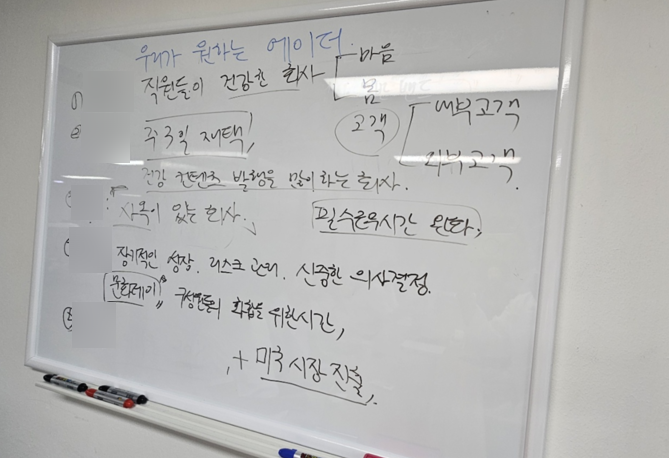 우리가 원하는 에이더
① 직원들이 건강한 회사
마음
몸
② 주3일 재택,
고객
내부고객
외부고객
건강 컨텐츠 발행을 많이하는 회사.
사옥이 있는 회사.
필수근무시간 완화,
장기적인 성장. 리스크 관리. 신중한 의사결정.
"문화데이" 구성원들의 화합을 위한시간,
+ 미국 시장 진출,